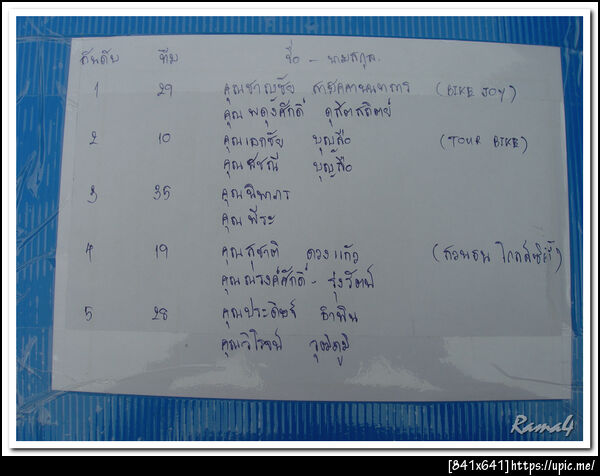 อันดับ ทีม ชื่อ - นามสกุล
1 29 คุณชาญชัย (BIKE JOY)
คุณผดุงศักดิ์ ดุสิตสถิตย์
2 10 คุณเอกชัย บุญลือ (TOUR BIKE)
คุณพัชณี บุญลือ
3 35 คุณนิพาภร
คุณพีระ
4 19 คุณสุชาติ ดวงแก้ว (สวนธน
คุณณรงค์ศักดิ์ - รุ่งรัตน์
5 28 คุณประดิษฐ์
คุณวิโรจน์ วุฒิภูมิ
Rama4
[841x641]https://upic.me/